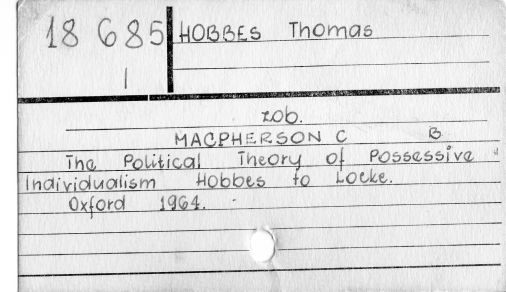 18 685
1
HOBBES Thomas
zob.
MACPHERSON C B
The Political Theory of Possessive
Individualism Hobbes to Locke.
Oxford 1964.